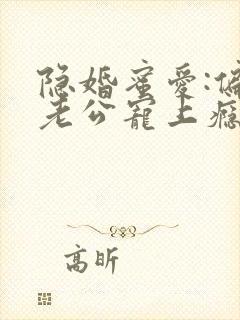 隐婚蜜爱:偏
老公宠上瘾
高昕